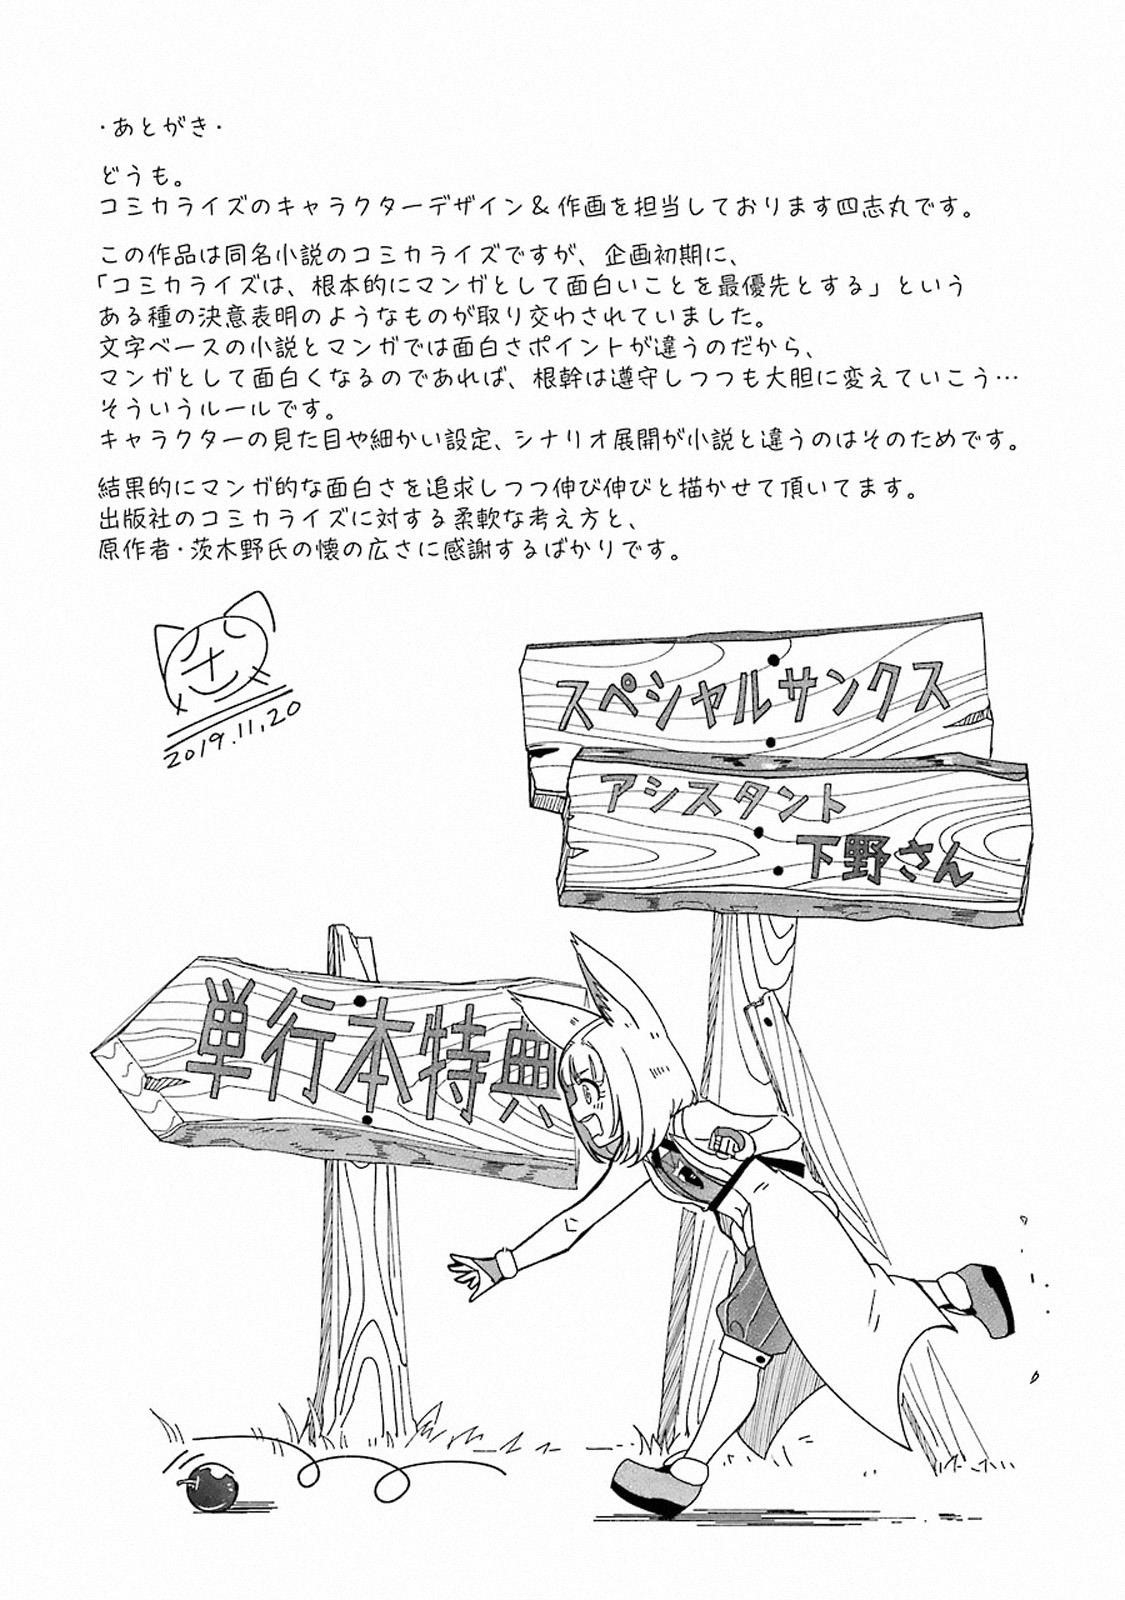 ・あとがき・
どうも。
コミカライズのキャラクターデザイン&作画を担当しております四志丸です。
この作品は同名小説のコミカライズですが、企画初期に、
「コミカライズは、根本的にマンガとして面白いことを最優先とする」という
ある種の決意表明のようなものが取り交わされていました。
文字ベースの小説とマンガでは面白さポイントが違うのだから、
マンガとして面白くなるのであれば、根幹は遵守しつつも大胆に変えていこう…
そういうルールです。
キャラクターの見た目や細かい設定、シナリオ展開が小説と違うのはそのためです。
結果的にマンガ的な面白さを追求しつつ伸び伸びと描かせて頂いてます。
出版社のコミカライズに対する柔軟な考え方と、
原作者・茨木野氏の懐の広さに感謝するばかりです。
2019.11.20
スペシャルサンクス
アシスタント
下野さん
単行本特典